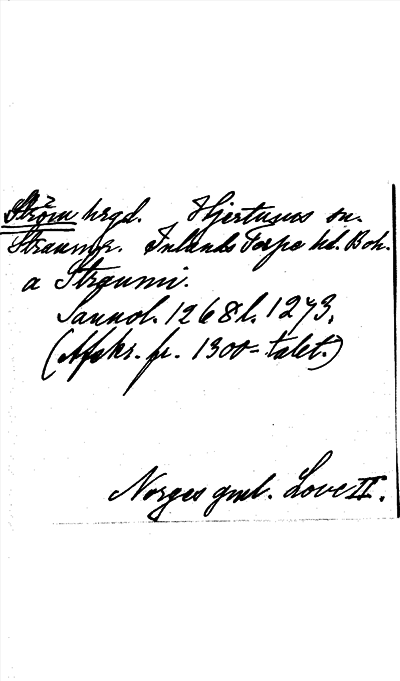 Ström hrgd. Hjertums sn.
Straumar. Inlands Torpe hd. Boh.
a Straumi.
Sannol. 1268 l. 1273.
(Afskr. fr. 1300-talet.)
Norges gml. Love II.